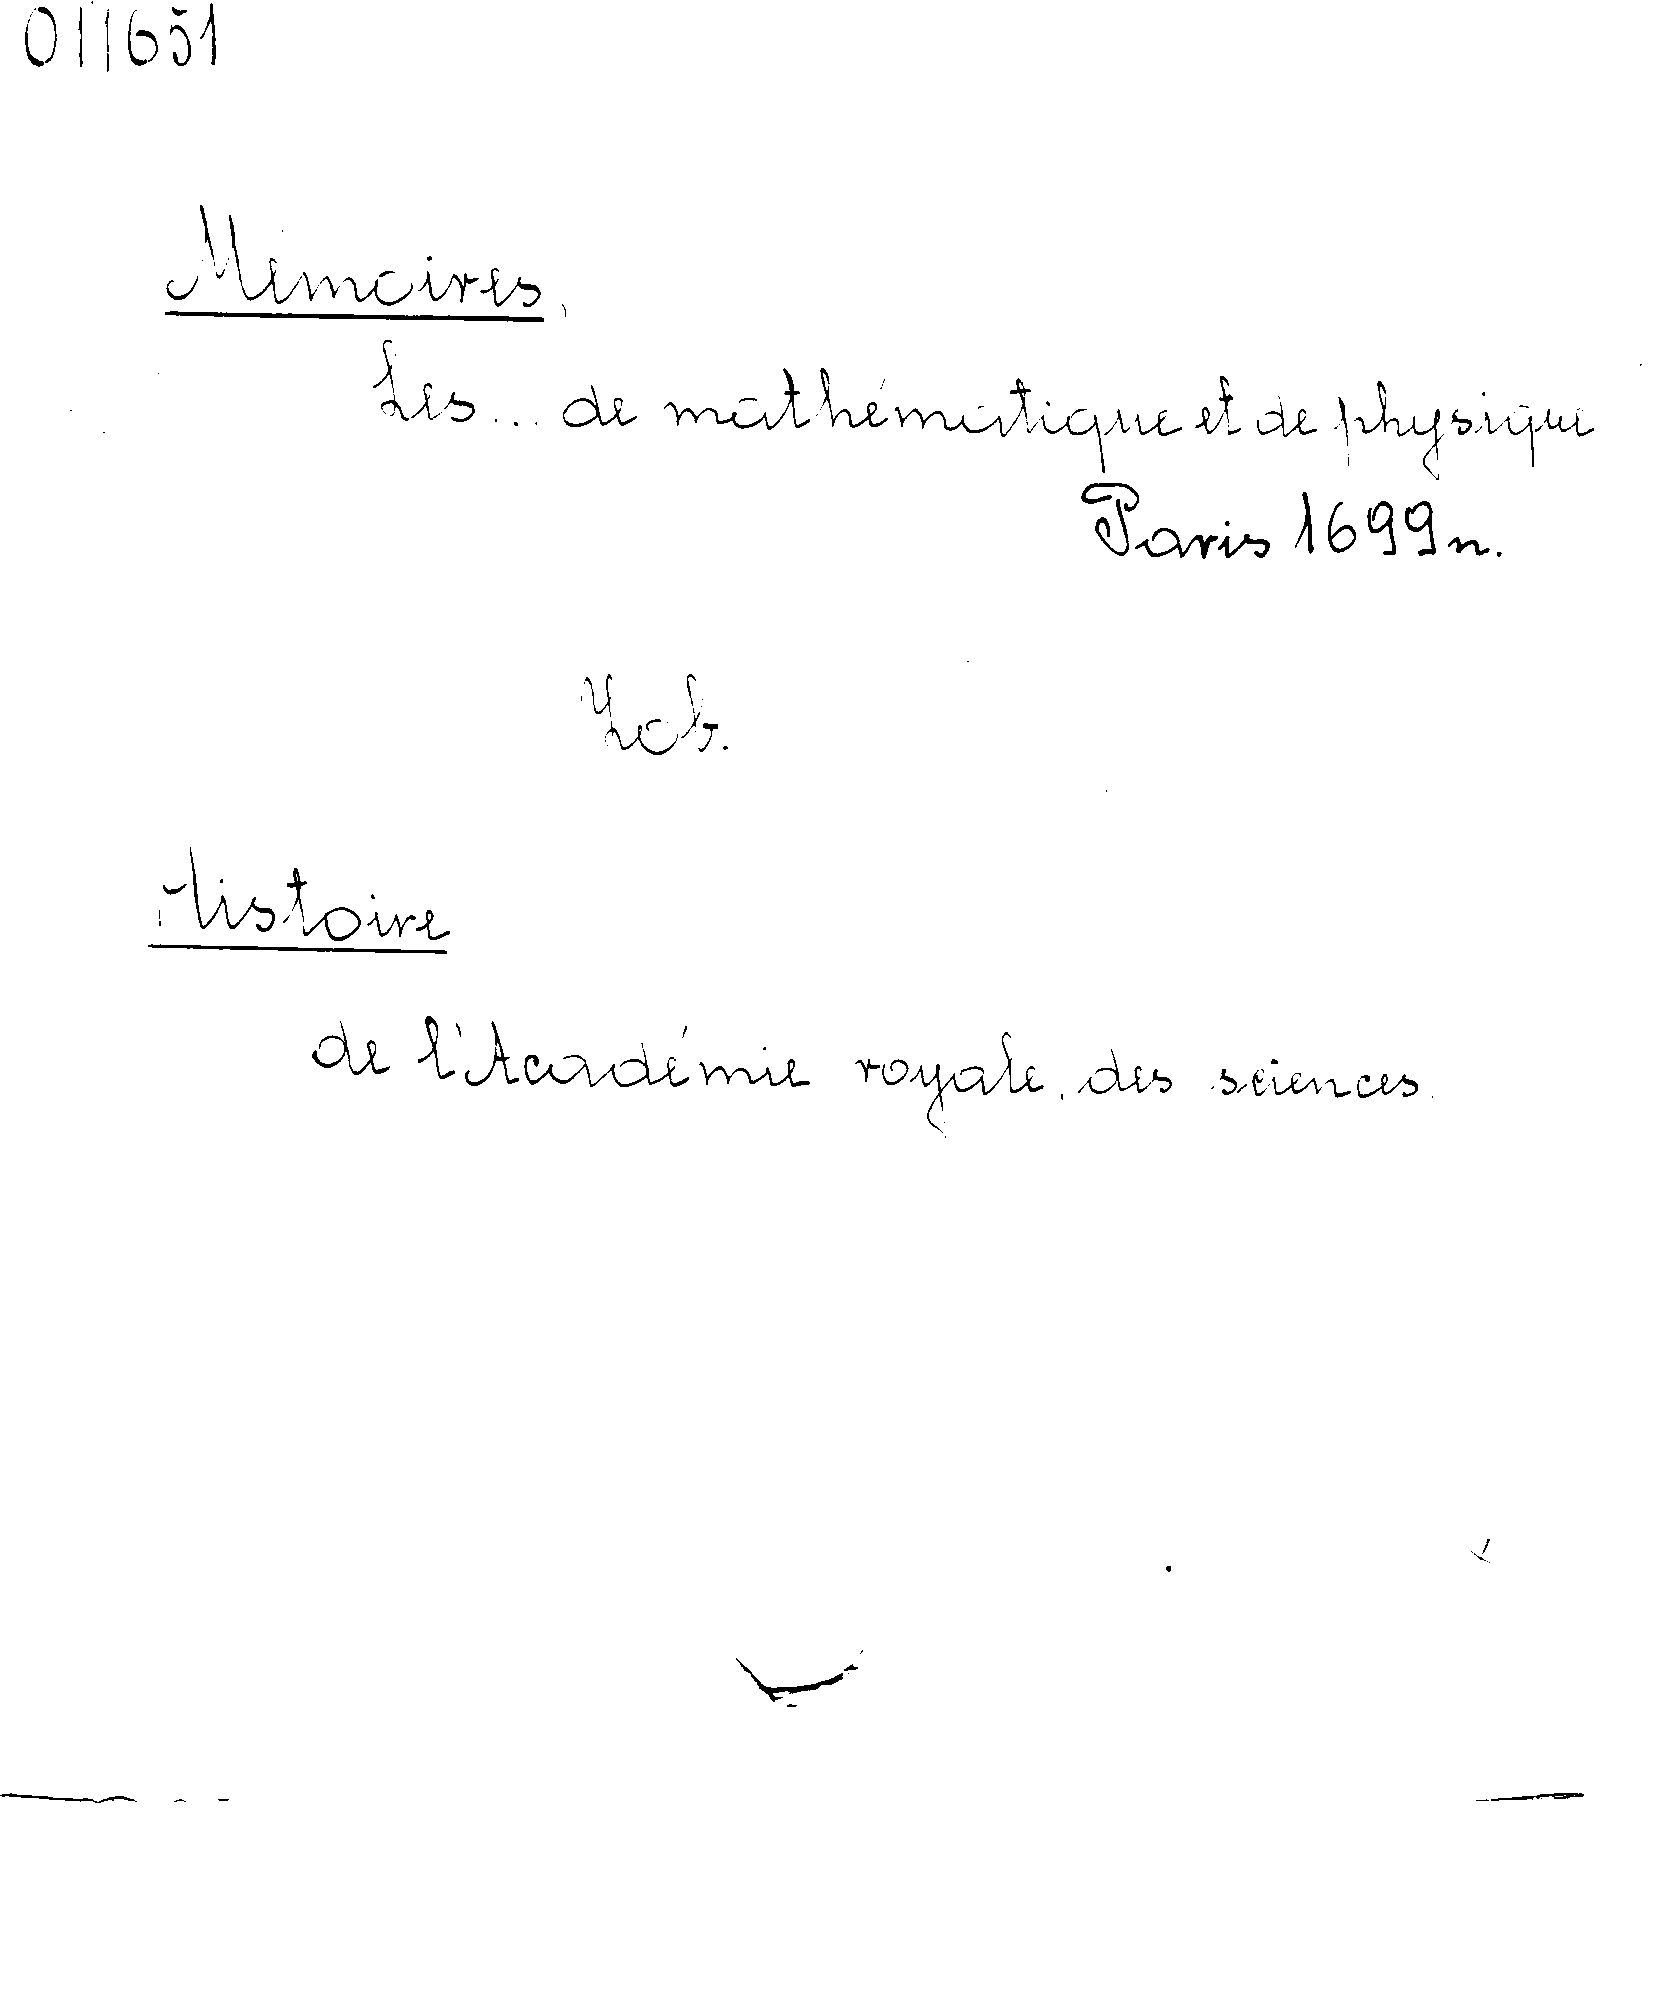 011651
Mémoires
Les... de mathématique et de physique
Paris 1699 n.
Zob.
Histoire
de l'Académie royale des sciences